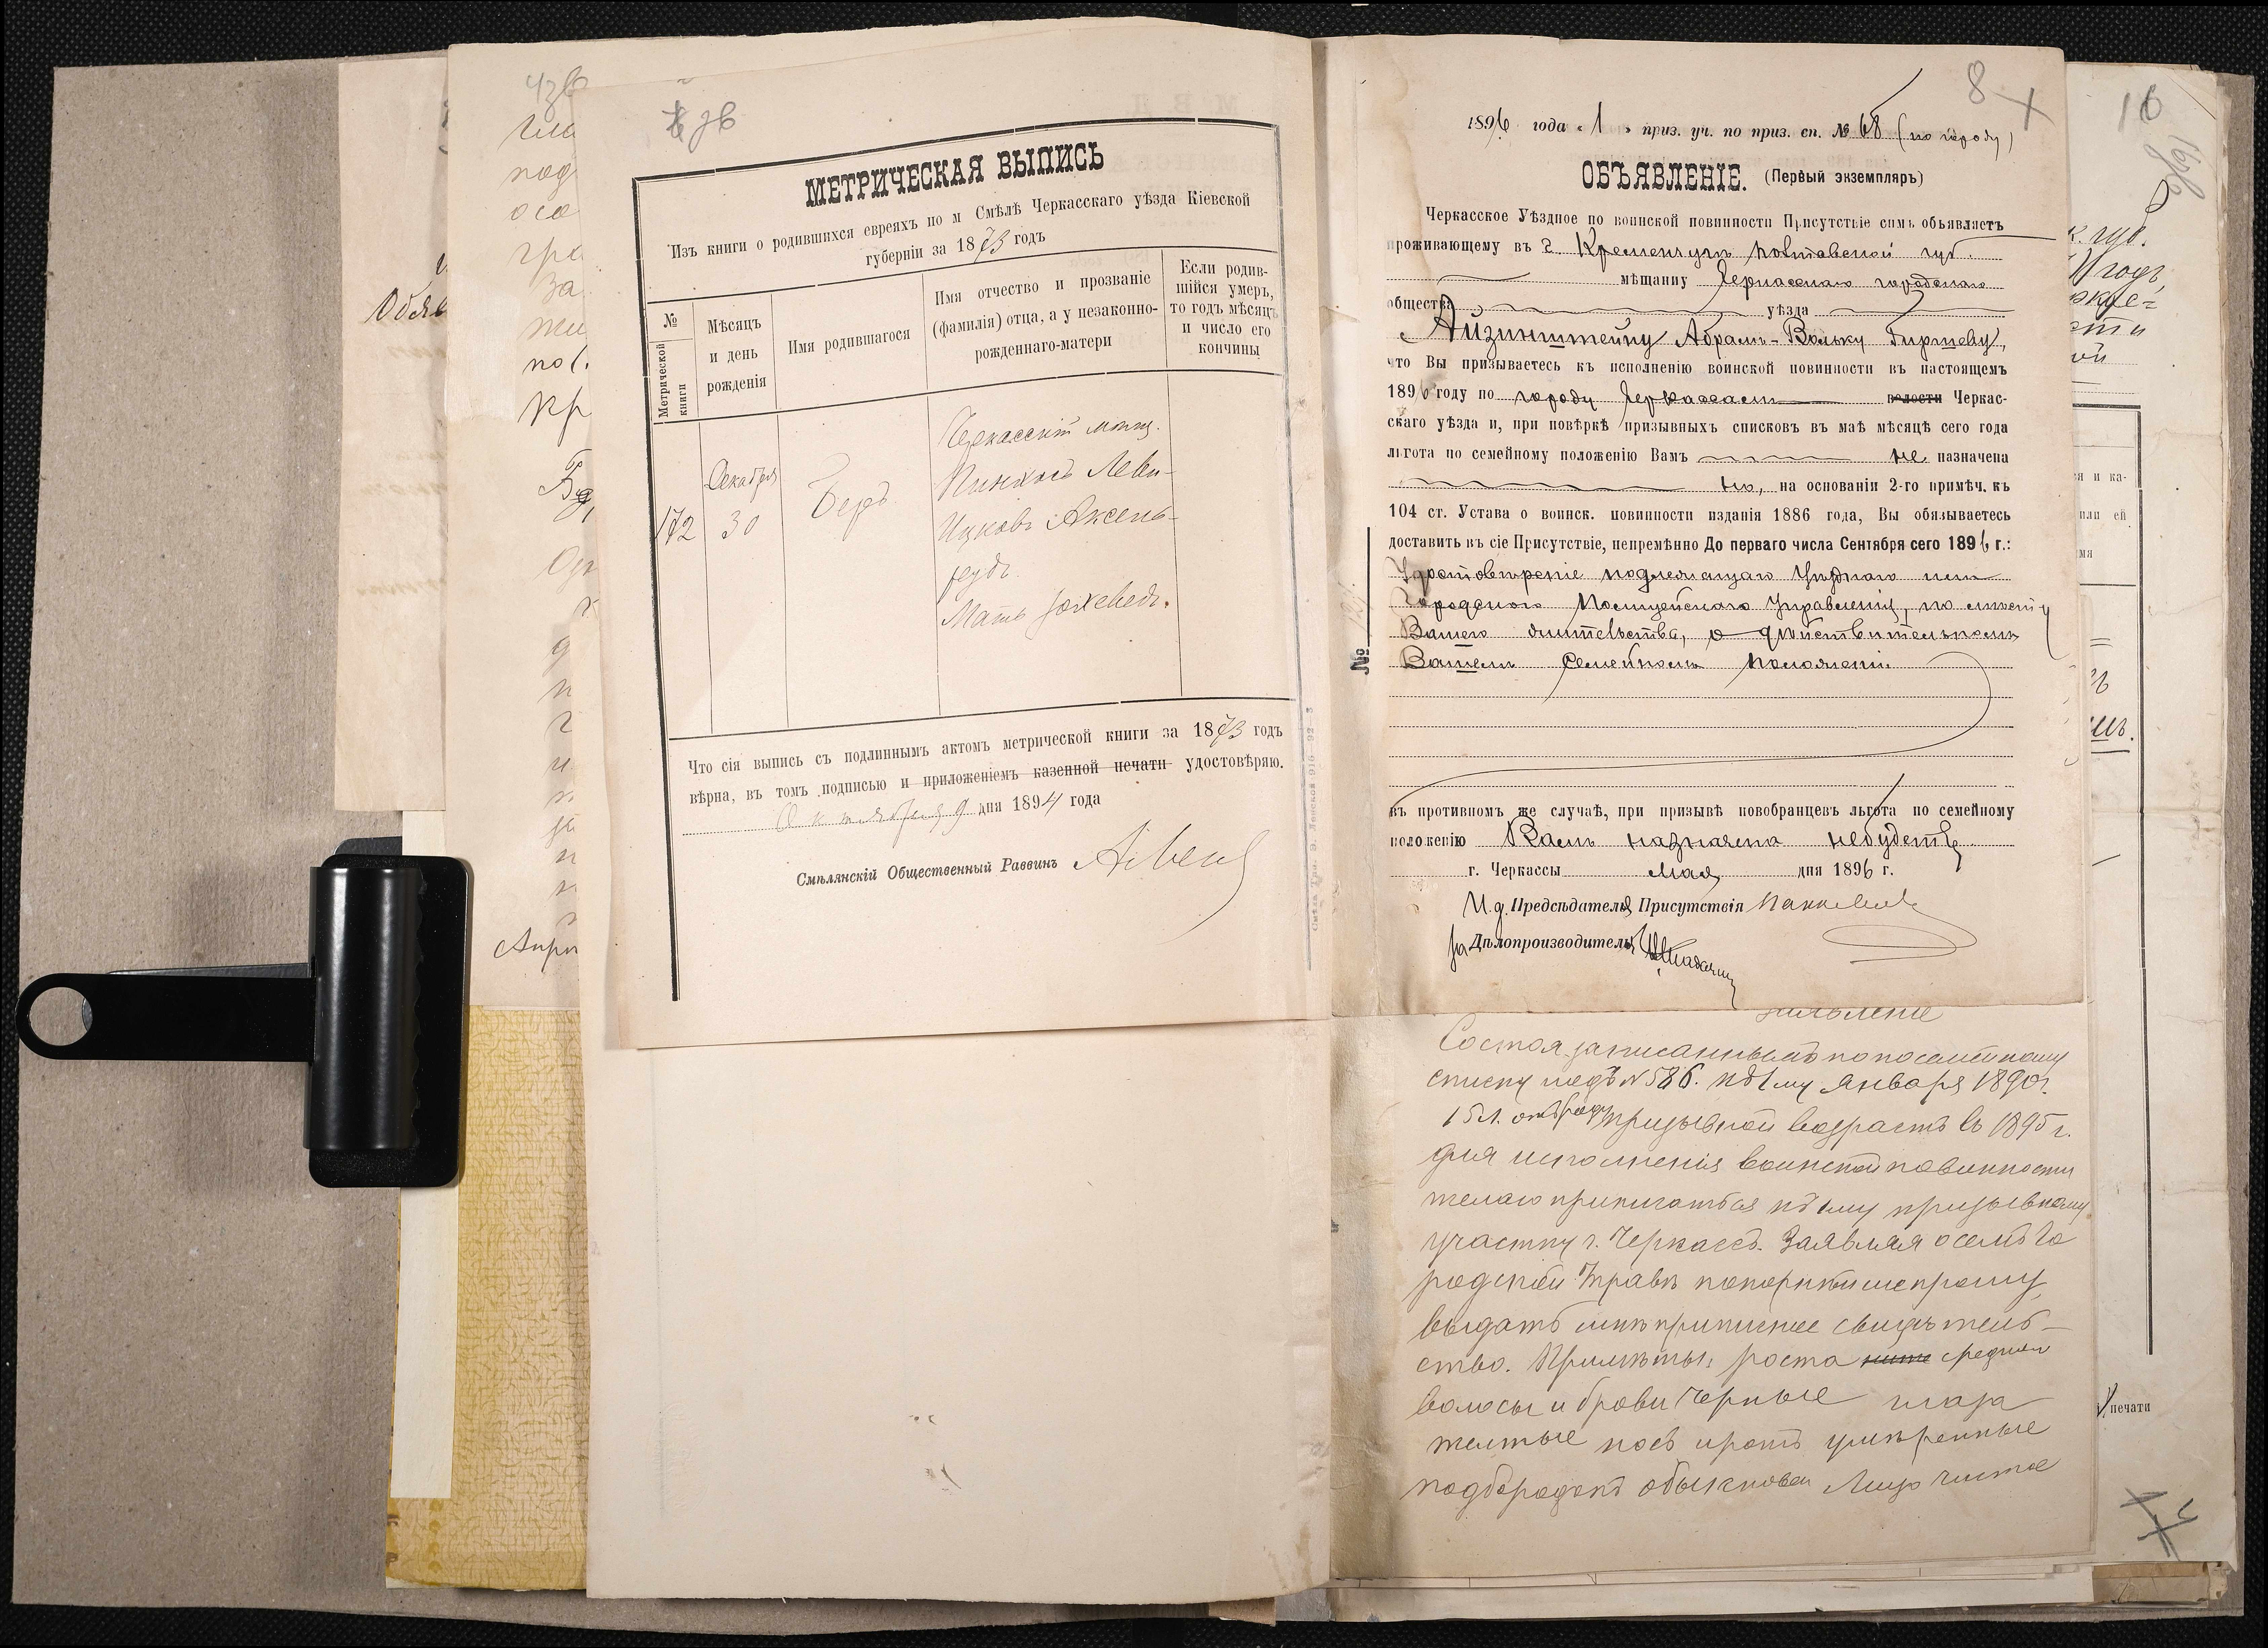 МЕТРИЧЕСКАЯ ВЫПИСЬ
Изъ книги о родившихся евреяхъ по м Смѣлѣ Черкасскаго уѣзда Кіевской
губерніи за 1873 годъ
№
Метрической книги
Мѣсяцъ
и день
рожденія
Имя родившагося
Имя отчество и прозваніе
(фамилія) отца, а у незаконно-
рожденнаго-матери
Если родив-
шійся умеръ,
то годъ мѣсяцъ
и число его
кончины
172
Декабря
30
Беръ
Черкасскій мѣщ.
Пинхосъ Леви-
Ицковъ Аксель-
родъ.
Мать Іохеведъ.
Что сія выпись съ подлиннымъ актомъ метрической книги за 1873 годъ
вѣрна, въ томъ подписью и приложеніемъ казенной печати удостовѣряю.
Октября 9 дня 1894 года
Смѣлянскій Общественный Раввинъ
8
1896 года „1„ приз. уч. по приз. сп. № 68 (по городу)
ОБЪЯВЛЕНІЕ. (Первый экземпляръ)
Черкасское Уѣздное по воинской повинности Присутствіе симъ объявляетъ
проживающему въ г. Кременчугѣ Полтавской губ.
мѣщанину Черкасскаго городскаго
общества уѣзда
Айзинштейну Абрамъ-Вольку Гиршеву,
что Вы призываетесь къ исполненію воинской повинности въ настоящемъ
1896 году по городу Черкассамъ волости Черкас-
скаго уѣзда и, при повѣркѣ призывныхъ списковъ въ маѣ мѣсяцѣ сего года
льгота по семейному положенію Вамъ не назначена
но, на основаніи 2-го примѣч. къ
104 ст. Устава о воинск. повинности изданія 1886 года, Вы обязываетесь
доставить въ сіе Присутствіе, непремѣнно До перваго числа Сентября сего 1896 г.:
Удостовѣреніе подлежащаго Уѣзднаго или
Городскаго Полицейскаго Управленія, по мѣсту
Вашего жительства, о дѣйствительномъ
Вашемъ семейномъ положеніи
№
въ противномъ же случаѣ, при призывѣ новобранцевъ льгота по семейному
положенію Вамъ назначена не будетъ
г. Черкассы Мая дня 1896 г.
И. д. Предсѣдателя Присутствія
за Дѣлопроизводителя
Состоя записаннымъ по посемейному
списку подъ № 586. къ 1му января 1890 г.
15 л. отъ роду призывной возрастъ въ 1895 г.
для исполненія воинской повинности
желаю приписаться къ 1му призывному
участку г. Черкассъ. Заявляя о семъ Го
родской Управѣ покорнѣйше прошу
выдать мнѣ приписное свидѣтель-
ство. Примѣты: роста средняго
волосы и брови черные глаза
желтые носъ и ротъ умѣренные
подбородокъ обыкновен Лицо чистое
16
печати